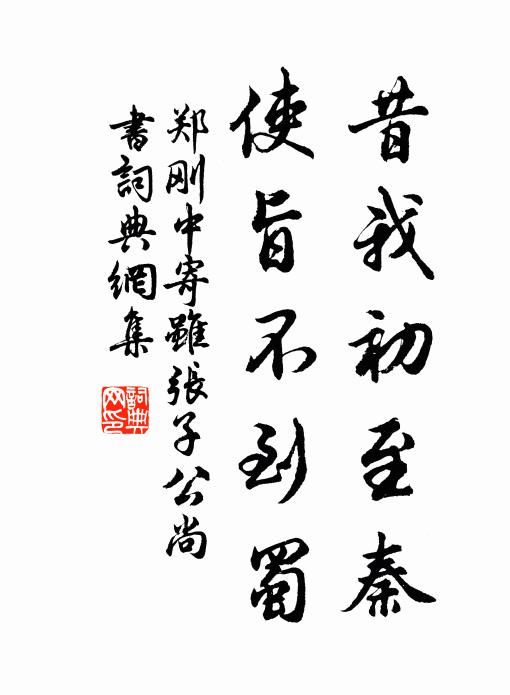 昔我初至秦
使旨不到蜀
郑刚中寄雖張子公尚
書詞典網集
詞典网印